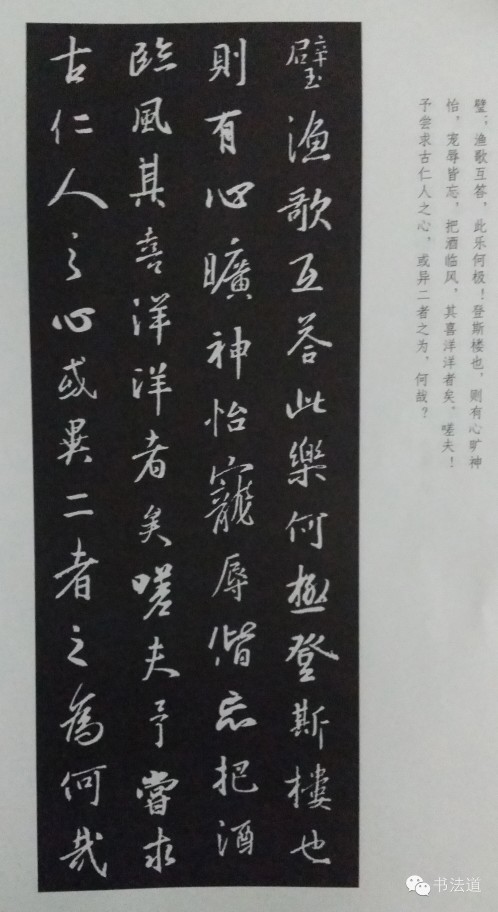 璧；渔歌互答，此乐何极！登斯楼也，则有心旷神
怡，宠辱皆忘，把酒临风，其喜洋洋者矣。嗟夫！
予尝求古仁人之心，或异二者之为，何哉？
璧漁歌互荅此樂何極登斯樓也
則有心曠神怡寵辱偕忘把酒
臨風其喜洋洋者矣嗟夫予嘗求
古仁人之心或異二者之為何哉
书法道